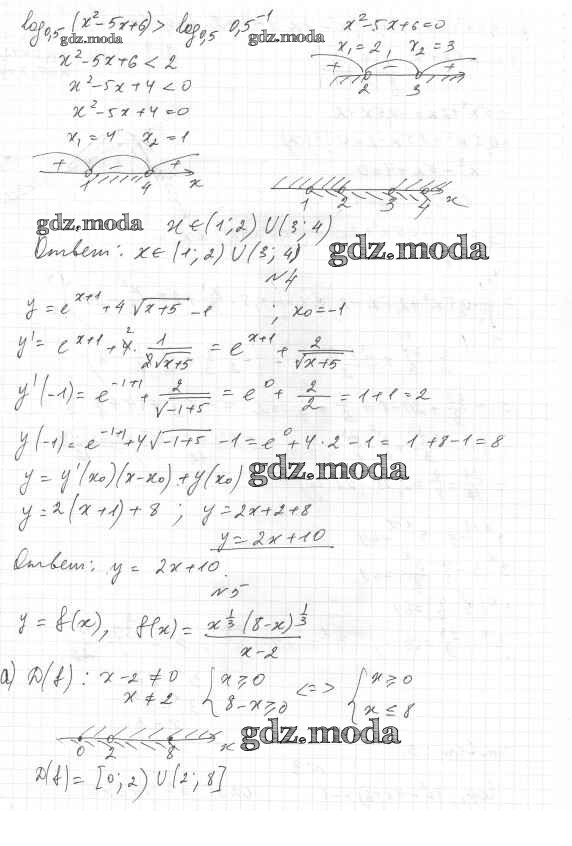 log₀,₅ (x²-5x+6) > log₀,₅ 0,5⁻¹
gdz.moda gdz.moda
x²-5x+6=0
x₁=2, x₂=3
x²-5x+6 < 2
+ - +
2 3
x²-5x+4 < 0
x²-5x+4=0
x₁=4 x₂=1
+ - +
1 4 x
1 2 3 4 x
gdz.moda x∈(1;2)∪(3;4)
Ответ: x∈(1;2)∪(3;4) gdz.moda
№4
y = e^(x+1) + 4√(x+5) - 1 ; x₀=-1
y' = e^(x+1) + 4² · 1/(2√(x+5)) = e^(x+1) + 2/√(x+5)
y'(-1) = e^(-1+1) + 2/√(-1+5) = e⁰ + 2/2 = 1+1=2
y(-1) = e^(-1+1) + 4√(-1+5) - 1 = e⁰ + 4·2-1 = 1+8-1=8
y = y'(x₀)(x-x₀) + y(x₀) gdz.moda
y = 2(x+1)+8 ; y=2x+2+8
y=2x+10
Ответ: y = 2x+10.
№5
y = f(x), f(x) = x^(1/3) (8-x)^(1/3) / (x-2)
а) D(f): x-2≠0 { x≥0 <=> { x≥0
x≠2 8-x≥0 x≤8
0 2 8 x gdz.moda
D(f) = [0;2)∪(2;8]